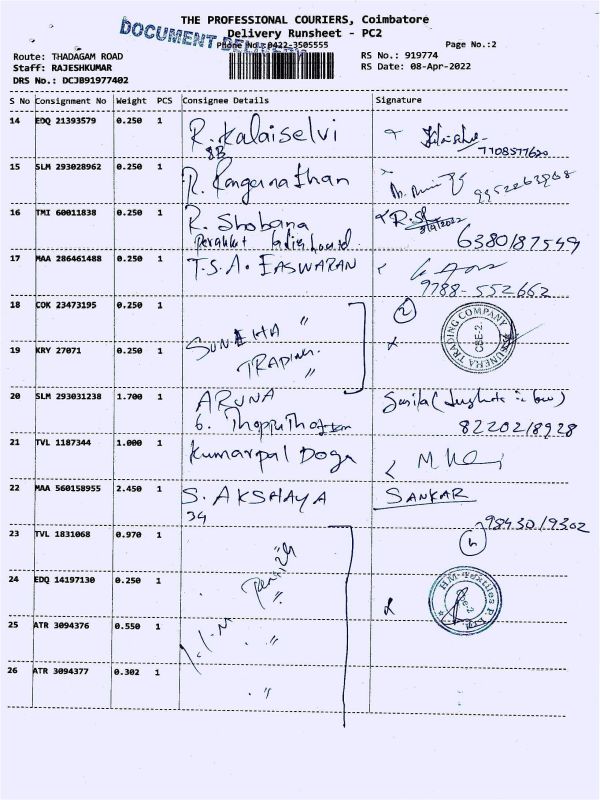 THE PROFESSIONAL COURIERS, Coimbatore
Delivery Runsheet - PC2
DOCUMENT DELIVERY
Phone No.: 0422-3505555
Page No.:2
Route: THADAGAM ROAD
RS No.: 919774
Staff: RAJESHKUMAR
RS Date: 08-Apr-2022
DRS No.: DCJB91977402
S No Consignment No Weight PCS Consignee Details Signature
14 EDQ 21393579 0.250 1 R. Kalaiselvi
8B 7708577620
15 SLM 293028962 0.250 1 R. Ranganathan
16 TMI 60011838 0.250 1 R. Shobana
6380187549
17 MAA 286461488 0.250 1 T.S.A. EASWARAN
9788-552662
18 COK 23473195 0.250 1 SUNEHA " 2
TRADING COMPANY SUNEHA CBE-2.
19 KRY 27071 0.250 1 TRADING
"
20 SLM 293031238 1.700 1 ARUNA
6. 8220218928
21 TVL 1187344 1.000 1 Kumarpal Doga
22 MAA 560158955 2.450 1 S. AKSHAYA SANKAR
34 9843019302
23 TVL 1831068 0.970 1
24 EDQ 14197130 0.250 1 " HM-Textiles P
25 ATR 3094376 0.550 1 "
26 ATR 3094377 0.302 1 "